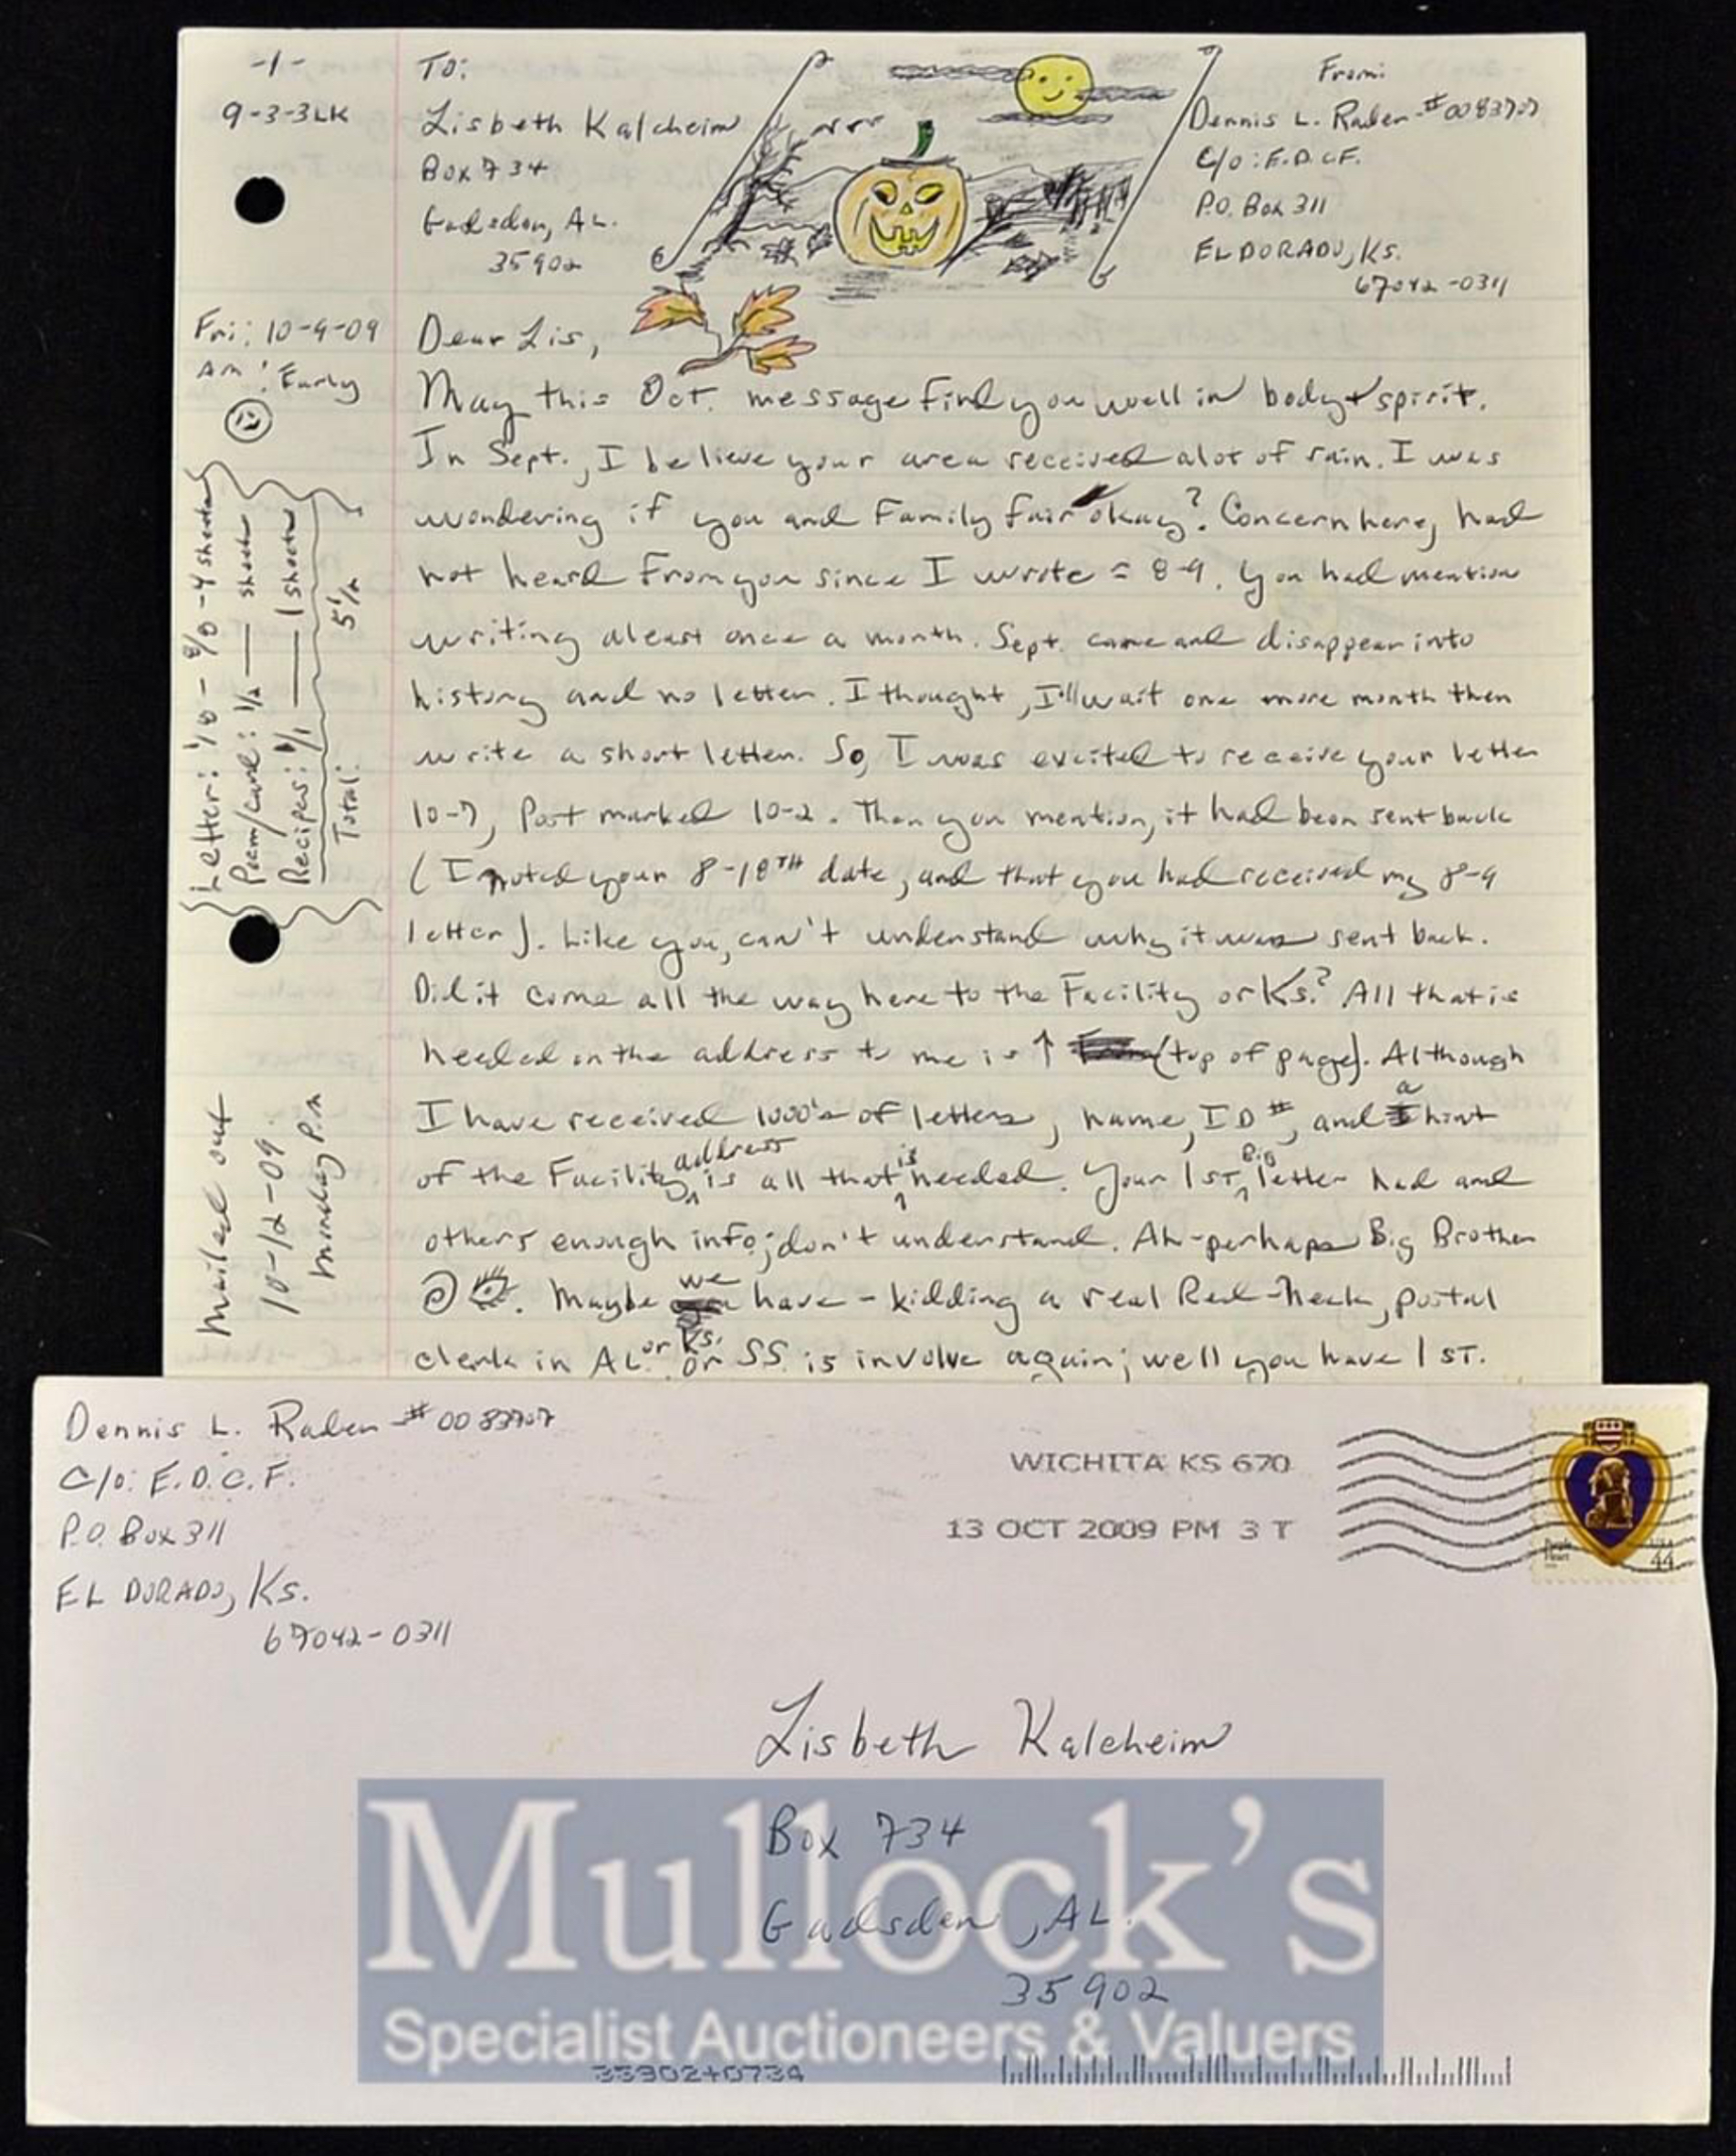 -1-
9-3-3LK
To:
Lisbeth Kalcheim
Box 734
Gadsden, AL.
35902
From:
Dennis L. Rader #0083707
C/O: E.D.C.F.
P.O. Box 311
EL DORADO, KS.
67042-0311
Fri: 10-9-09
Am: Early
Letter: 1/8 - 8/8 - 4 sheets
Poem/Card: 1/2 — sheet
Recipes: 1/1 — 1 sheet
Total: 5 1/2
Mailed out
10-12-09
Monday P.M
Dear Lis,
May this Oct. message find you well in body + spirit.
In Sept., I believe your area received alot of rain. I was
wondering if you and Family fair okay? Concern here, had
not heard From you since I wrote = 8-9. You had mention
writing aleast once a month. Sept. came and disappear into
history and no letter. I thought, I'll wait one more month then
write a short letter. So, I was excited to receive your letter
10-7, Post marked 10-2. Then you mention, it had been sent back
(I noted your 8-18TH date, and that you had received my 8-9
letter). Like you, can't understand why it was sent back.
Did it come all the way here to the Facility or Ks.? All that is
needed in the address to me is ↑ (top of page). Although
I have received 1000's of letters, name, ID #, and a hint
of the Facility address is all that is needed. Your 1ST, Big letter had and
others enough info; don't understand. Ah-perhaps Big Brother
@. Maybe we have - kidding a real Red-Neck, postal
clerk in AL. or Ks. or SS. is involve again; well you have 1ST.
Dennis L. Rader #0083707
C/O: E.D.C.F.
P.O. Box 311
EL DORADO, KS.
67042-0311
WICHITA KS 670
13 OCT 2009 PM 3 T
Purple
Heart
USA
44
Lisbeth Kalcheim
Box 734
Gadsden, AL.
35902
Mullock's
Specialist Auctioneers & Valuers
35902+0734